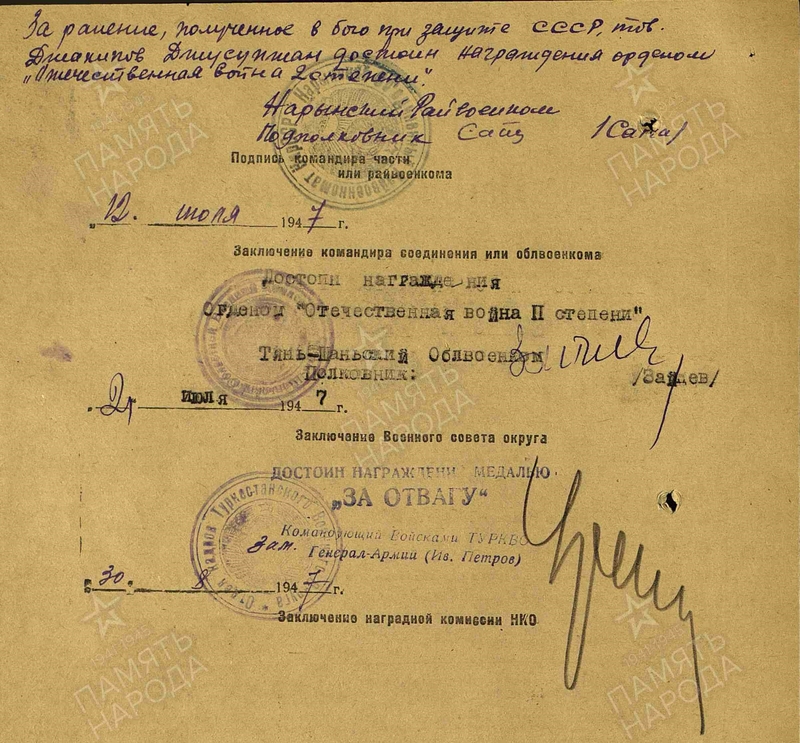 За ранение, полученное в бою при защите СССР, тов.
Джакипов Джусупжан достоин награждения орденом
„Отечественная война 2 степени".
Нарынский Райвоенком
Подполковник
Подпись командира части
или райвоенкома
„12. июля 1947 г.
Заключение командира соединения или облвоенкома
Достоин награждения
Орденом "Отечественная война II степени"
Тянь-Шаньский Облвоенком
Полковник: /Зайцев/
июля 1947 г.
Заключение Военного совета округа
ДОСТОИН НАГРАЖДЕНИ МЕДАЛЬЮ
„ЗА ОТВАГУ“
Зам. Командующий Войсками ТУРКВО
Генерал-Армий (Ив. Петров)
„30. 8 1947 г.
Заключение наградной комиссии НКО
ПАМЯТЬ
НАРОДА